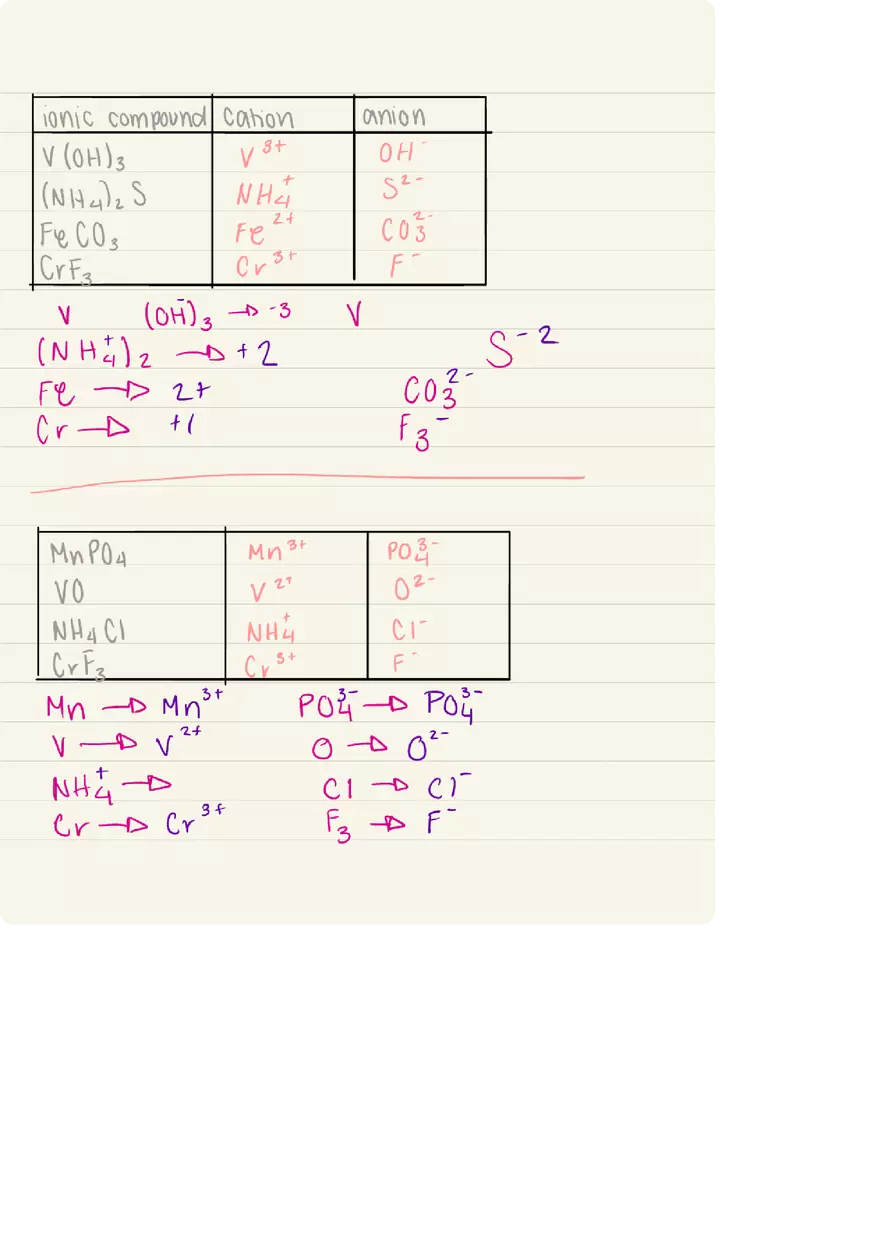 ionic compound cation anion
V(OH)₃ V³⁺ OH⁻
(NH₄)₂S NH₄⁺ S²⁻
FeCO₃ Fe²⁺ CO₃²⁻
CrF₃ Cr³⁺ F⁻
V (OH⁻)₃ → -3 V
(NH₄⁺)₂ → +2 S⁻²
Fe → 2+ CO₃²⁻
Cr → +1 F₃⁻
MnPO₄ Mn³⁺ PO₄³⁻
VO V²⁺ O²⁻
NH₄Cl NH₄⁺ Cl⁻
CrF₃ Cr³⁺ F⁻
Mn → Mn³⁺ PO₄³⁻ → PO₄³⁻
V → V²⁺ O → O²⁻
NH₄⁺ → Cl → Cl⁻
Cr → Cr³⁺ F₃ → F⁻